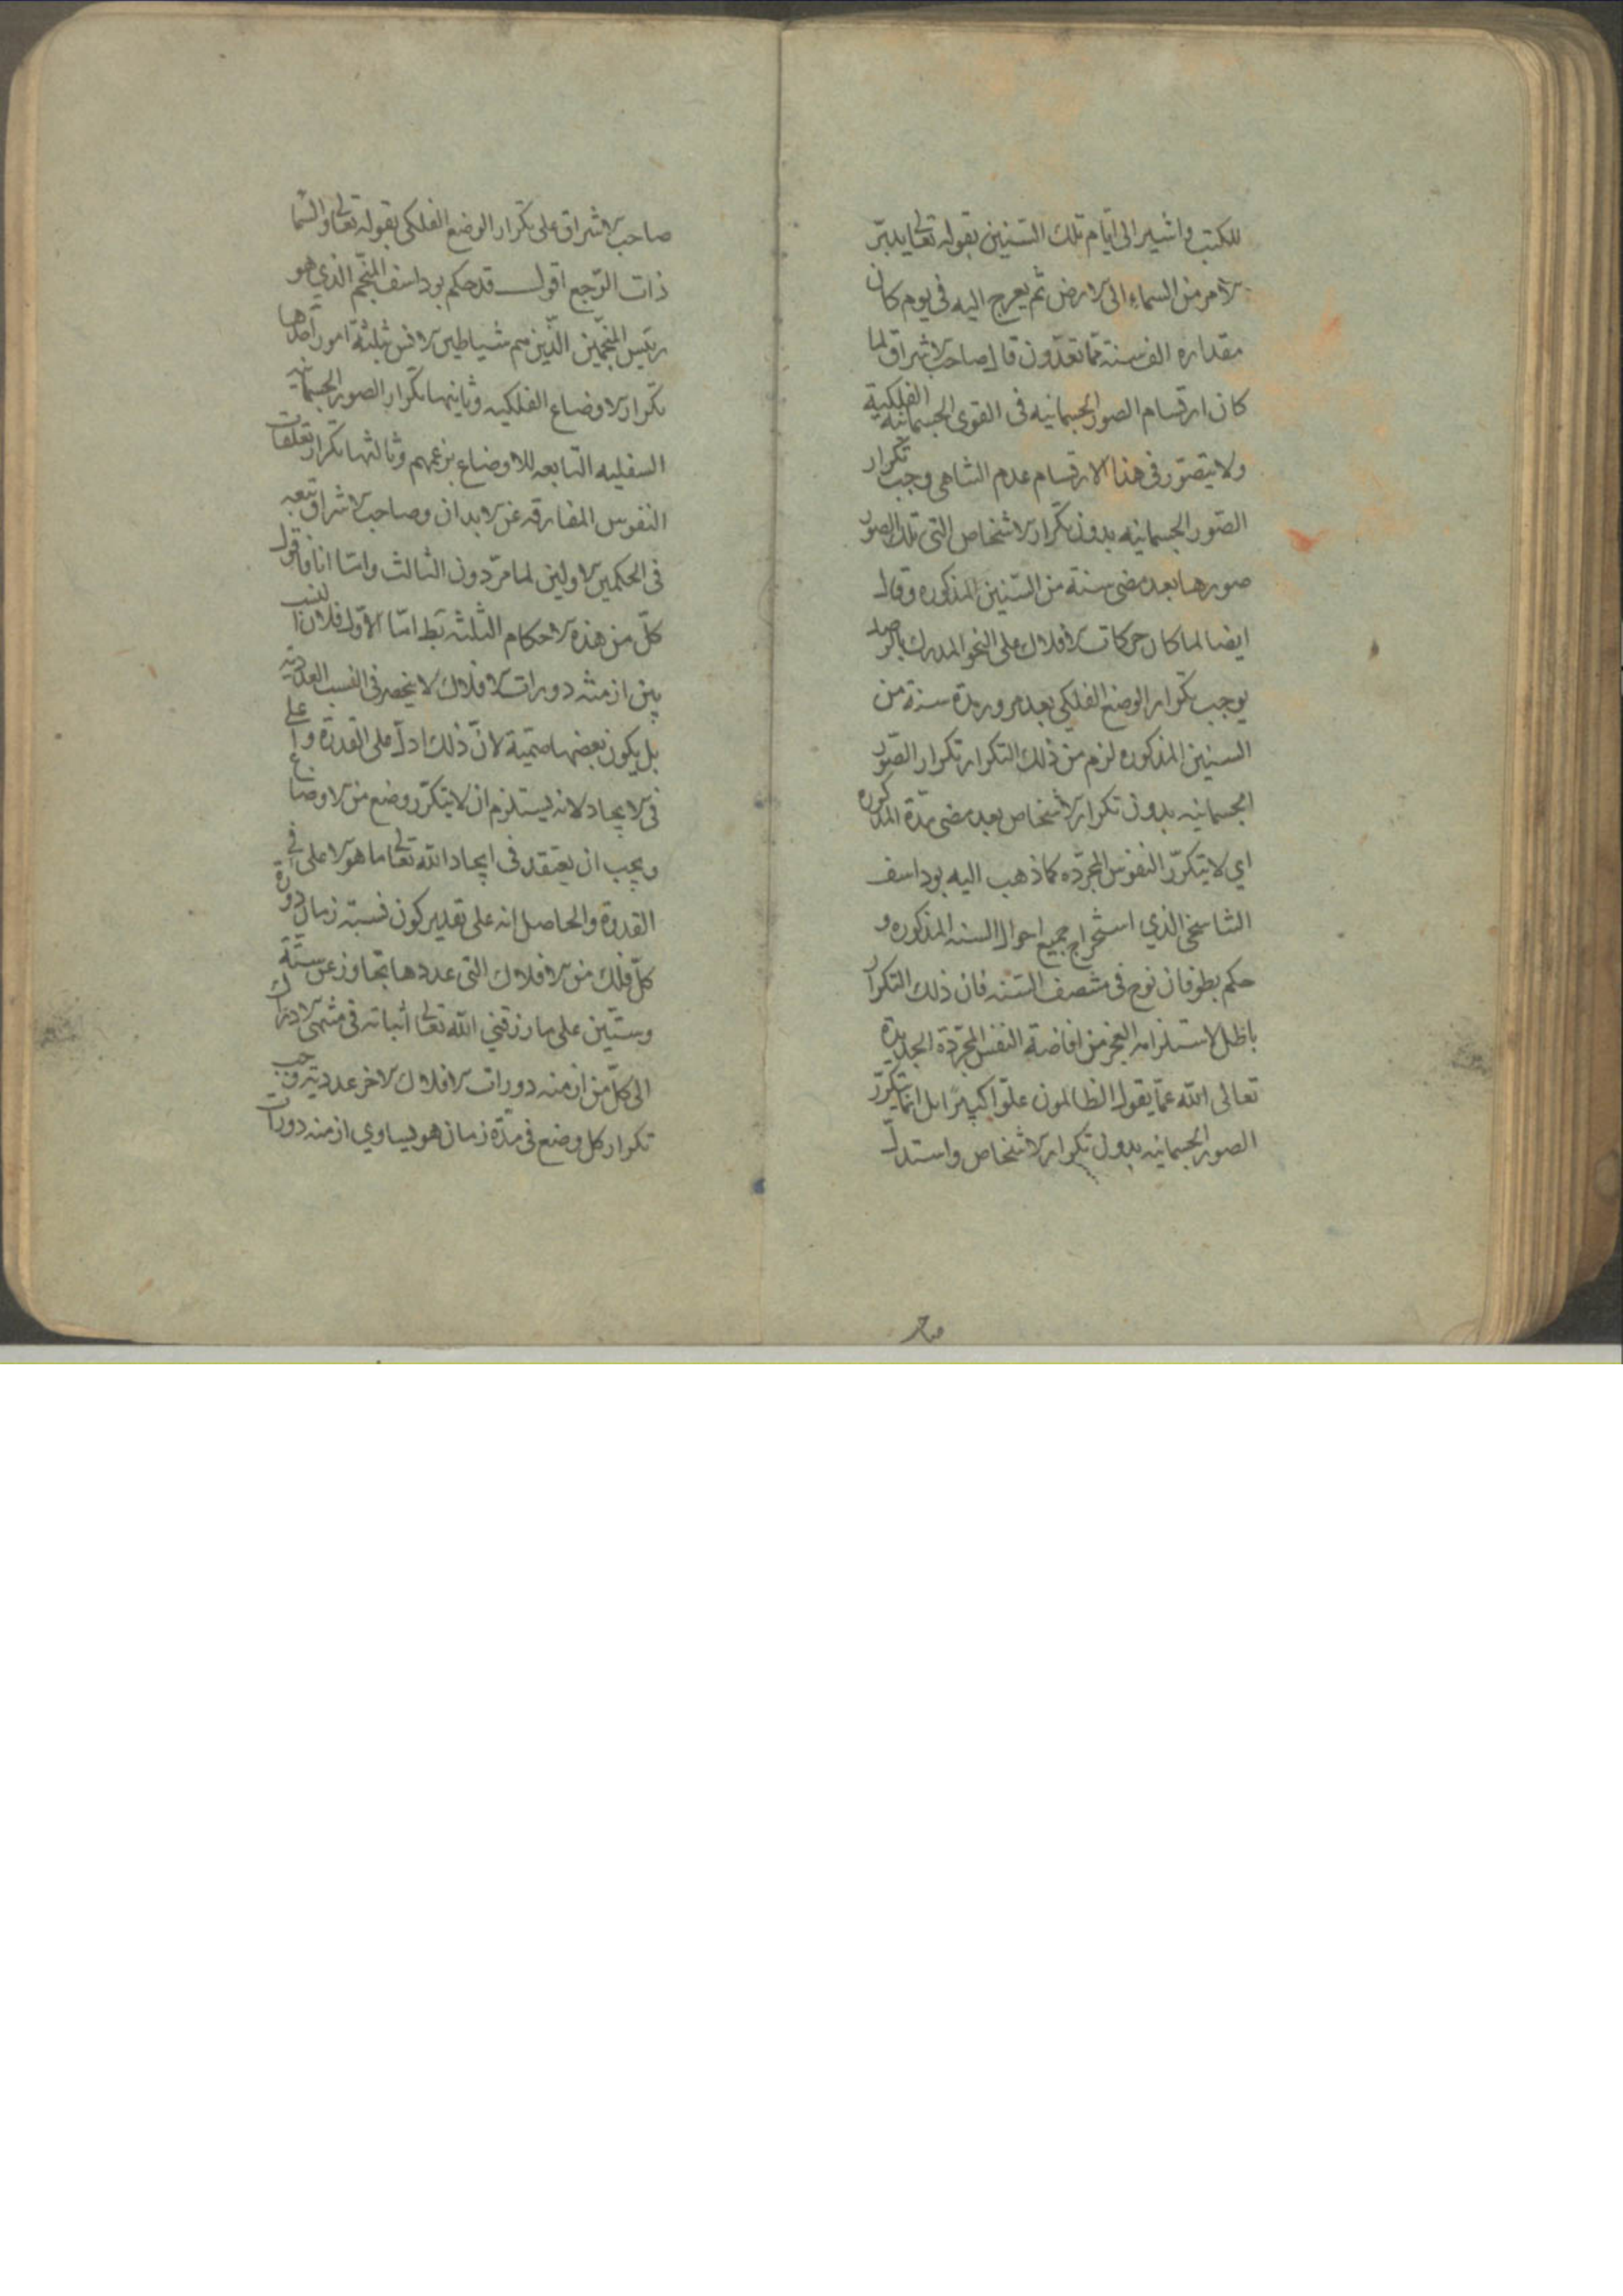 للكتب واشير الى ايّام تلك السّنين بقوله تعالى يدبّر
الامر من السماء الى الارض ثم يعرج اليه في يوم كان
مقداره الف سنة ممّا تعدّون قال صاحب الاشراق لما
كان ارتسام الصور الجسمانيه فى القوى الجسمانيه الفلكية
ولا يتصوّر فى هذا الارتسام عدم التناهى وجب تكرار
الصّور الجسمانيه بدون تكرار الاشخاص التى تلك الصور
صورها بعد مضى سنة من السّنين المذكوره وقال
ايضا لما كان حركات الافلاك على النحو المدرك بالرصد
يوجب تكرار الوضع الفلكى بعد مرور مدة سنة من
السنين المذكوره لزم من ذلك التكرار تكرار الصّور
الجسمانيه بدون تكرار الاشخاص بعد مضى مدّة المذكوره
اي لا يتكرّر النفوس المجرّده كما ذهب اليه بوداسف
التناسخى الذي استخراج جميع احوال السنه المذكوره و
حكم بطوفان نوح فى منتصف السّنه فان ذلك التكرار
باطل لاستلزامه العجز من افاضة النفس المجرّدة الجديدة
تعالى الله عمّا يقول الظالمون علوّا كبيرًا بل انما يتكرّر
الصور الجسمانيه بدون تكرار الاشخاص واستدلّ
صاحب الاشراق على تكرار الوضع الفلكى بقوله تعالى والسّما
ذات الرّجع اقول قد حكم بوداسف المنجّم الذي هو
رئيس المنجّمين الّذين هم شياطين الانس بثلثة امور احدها
تكرار الاوضاع الفلكيه وثانيها تكرار الصور الجسمانيه
السفليه التابعه للاوضاع بزعمهم وثالثها تكرار تعلقات
النفوس المفارقه عن الابدان وصاحب الاشراق تبعه
فى الحكمين الاولين لما مرّ دون الثالث وامّا انا فاقول
كلّ من هذه الاحكام الثلثة بط امّا الاوّل فلان النسب
بين ازمنه دورات الافلاك لا ينحصر فى النسب العدديه
بل يكون بعضها صمّية لانّ ذلك ادلّ على القدرة واعلى
فى الايجاد لانه يستلزم ان لا يتكرّر وضع من الاوضاع
ويجب ان يعتقد فى ايجاد الله تعالى ما هو الاعلى فى
القدرة والحاصل انه على تقدير كون نسبة زمان دورة
كلّ فلك من الافلاك التى عددها تجاوز عن ستّة
وستّين على ما رزقنى الله تعالى اثباته فى منتهى الادراك
الى كلّ من ازمنه دورات الافلاك الاخر عدديّة وجب
تكرار كل وضع فى مدّة زمان هو يساوي ازمنه دورات